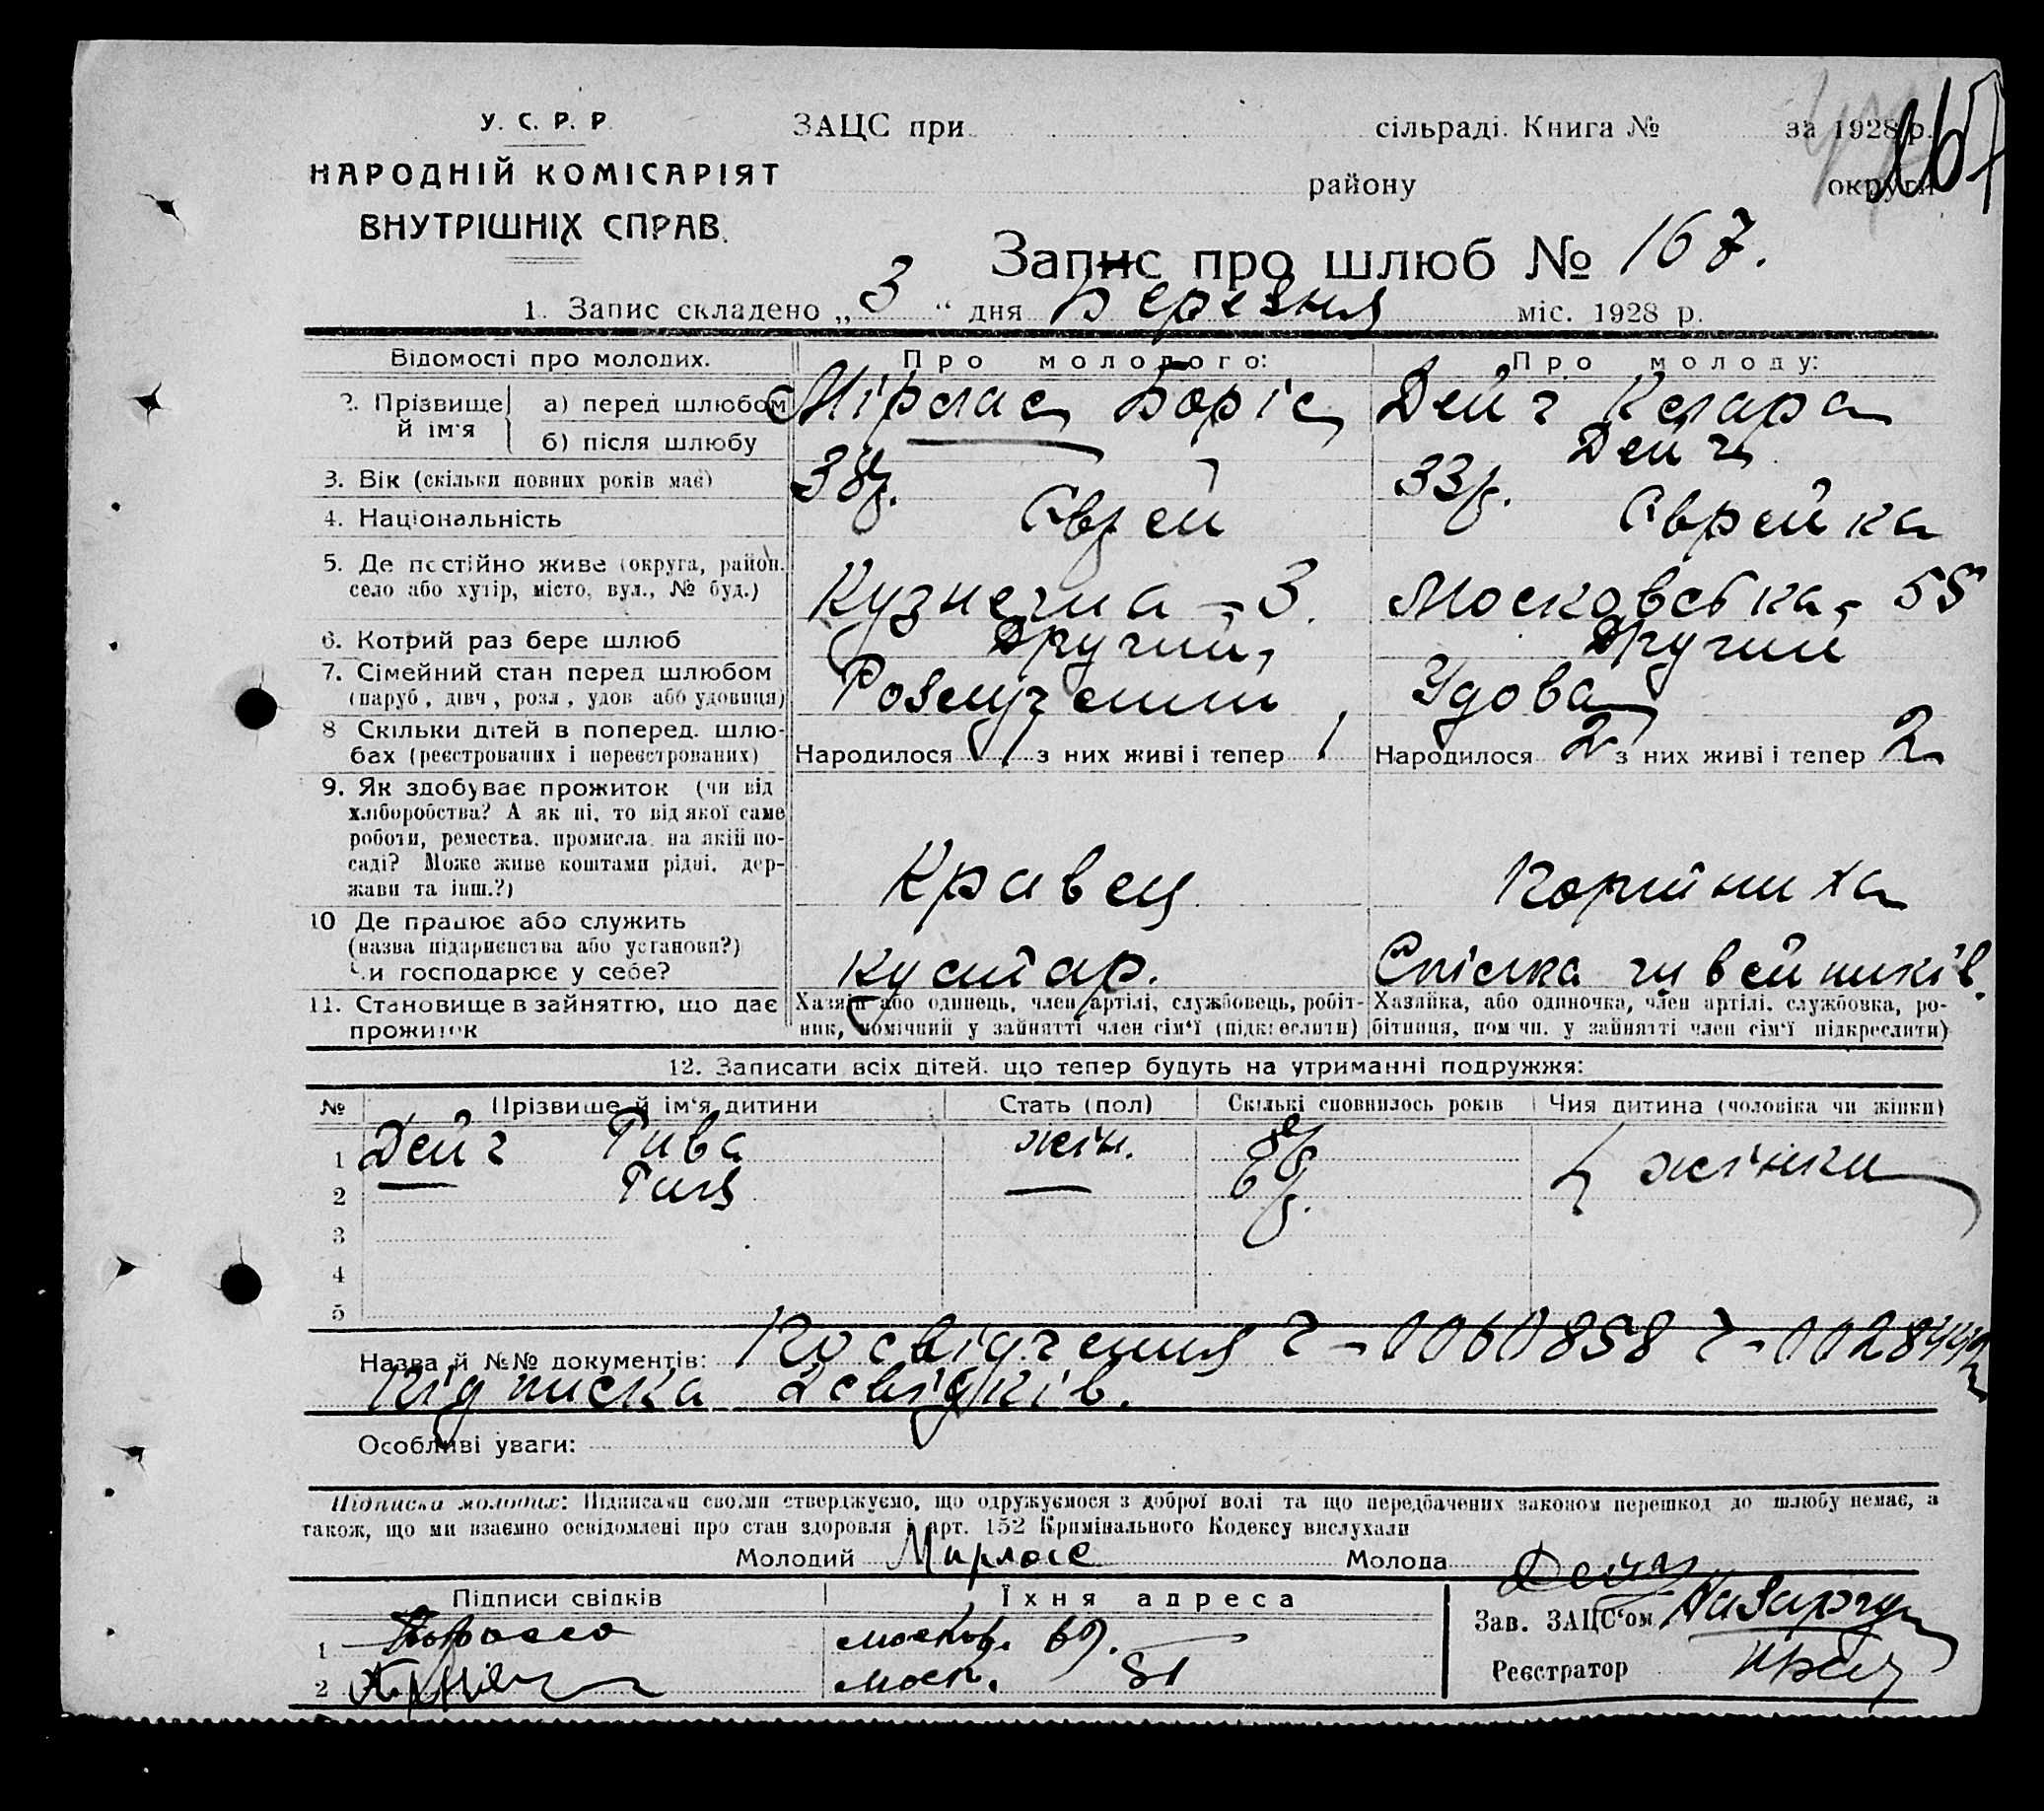 167
У. С. Р. Р.
НАРОДНІЙ КОМІСАРІЯТ
ВНУТРІШНІХ СПРАВ.
ЗАЦС при сільраді. Книга № за 1928 р.
району округи
Запис про шлюб № 167.
1. Запис складено „ 3 “ дня Березня міс. 1928 р.
Відомості про молодих. Про молодого: Про молоду:
2. Прізвище й ім'я а) перед шлюбом Мірлас Боріс Дейч Клара
б) після шлюбу Дейч
3. Вік (скільки повних років має) 38р. 33р.
4. Національність Єврей Єврейка
5. Де постійно живе (округа, район, село або хутір, місто, вул., № буд.) Кузнечна - 3. Московська - 55
6. Котрий раз бере шлюб Другий Другий
7. Сімейний стан перед шлюбом (паруб., дівч., розл., удов. або удовиця) Розлучений Удова
8 Скільки дітей в поперед. шлюбах (реєстрованих і нереєстрованих) Народилося 1 з них живі і тепер 1 Народилося 2 з них живі і тепер 2
9. Як здобуває прожиток (чи від
хліборобства? А як ні, то від якої саме
роботи, ремества, промисла, на якій по-
саді? Може живе коштами рідні, дер-
жави та інш.?) Кравец
10 Де працює або служить
(назва підприємства або установи?)
Чи господарює у себе? кустар. Спілка швейників.
11. Становище в зайняттю, що дає прожиток
Хазяїн або одинець, член артілі, службовець, робіт-
ник, помічний у зайнятті член сім'ї (підкреслити)
Хазяйка, або одиночка, член артілі, службовка, ро-
бітниця, помічн. у зайнятті член сім'ї підкреслити)
12. Записати всіх дітей, що тепер будуть на утриманні подружжя:
№ Прізвище й ім'я дитини Стать (пол) Скількі сповнилось років Чия дитина (чоловіка чи жінки)
1 Дейч Рива жін. 8 жінки
2 — — 6 р.
3
4
5
Назва й №№ документів: Посвідчення
Підписка 2 свідків.
Особливі уваги:
Підписка молодих: Підписами своїми стверджуємо, що одружуємося з доброї волі та що передбачених законом перешкод до шлюбу немає, а
також, що ми взаємно освідомлені про стан здоровля і арт. 152 Кримінального Кодексу вислухали
Молодий Мирлас Молода Дейч
Підписи свідків Їхня адреса
Зав. ЗАЦС'ом
1 Москов. 69.
Реєстратор
2 Моск. 81